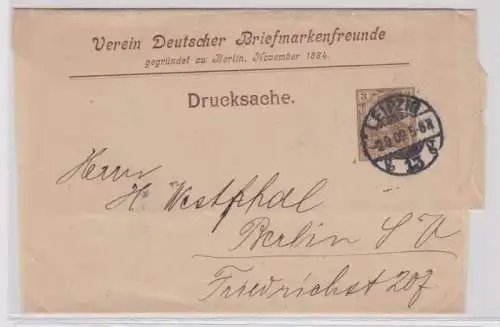 Verein Deutscher Briefmarkenfreunde
gegründet zu Berlin, November 1884.
Drucksache.
3
LEIPZIG
13
Herrn
H. Westfhal
Berlin S W
Friedrichst 207